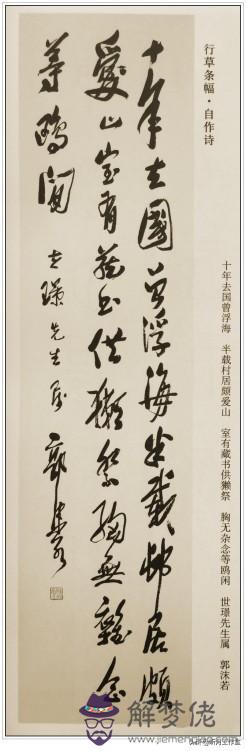 行草条幅·自作诗
十年去国曾浮海　半载村居颇爱山　室有藏书供獭祭　胸无杂念等鸥闲　世璟先生属　郭沫若
十年去國曾浮海半載邨居頗
愛山室有藏書供獺祭胸無雜念
等鷗閒　世璟先生属　郭沫若
解梦佬
www.jiemenglao.com